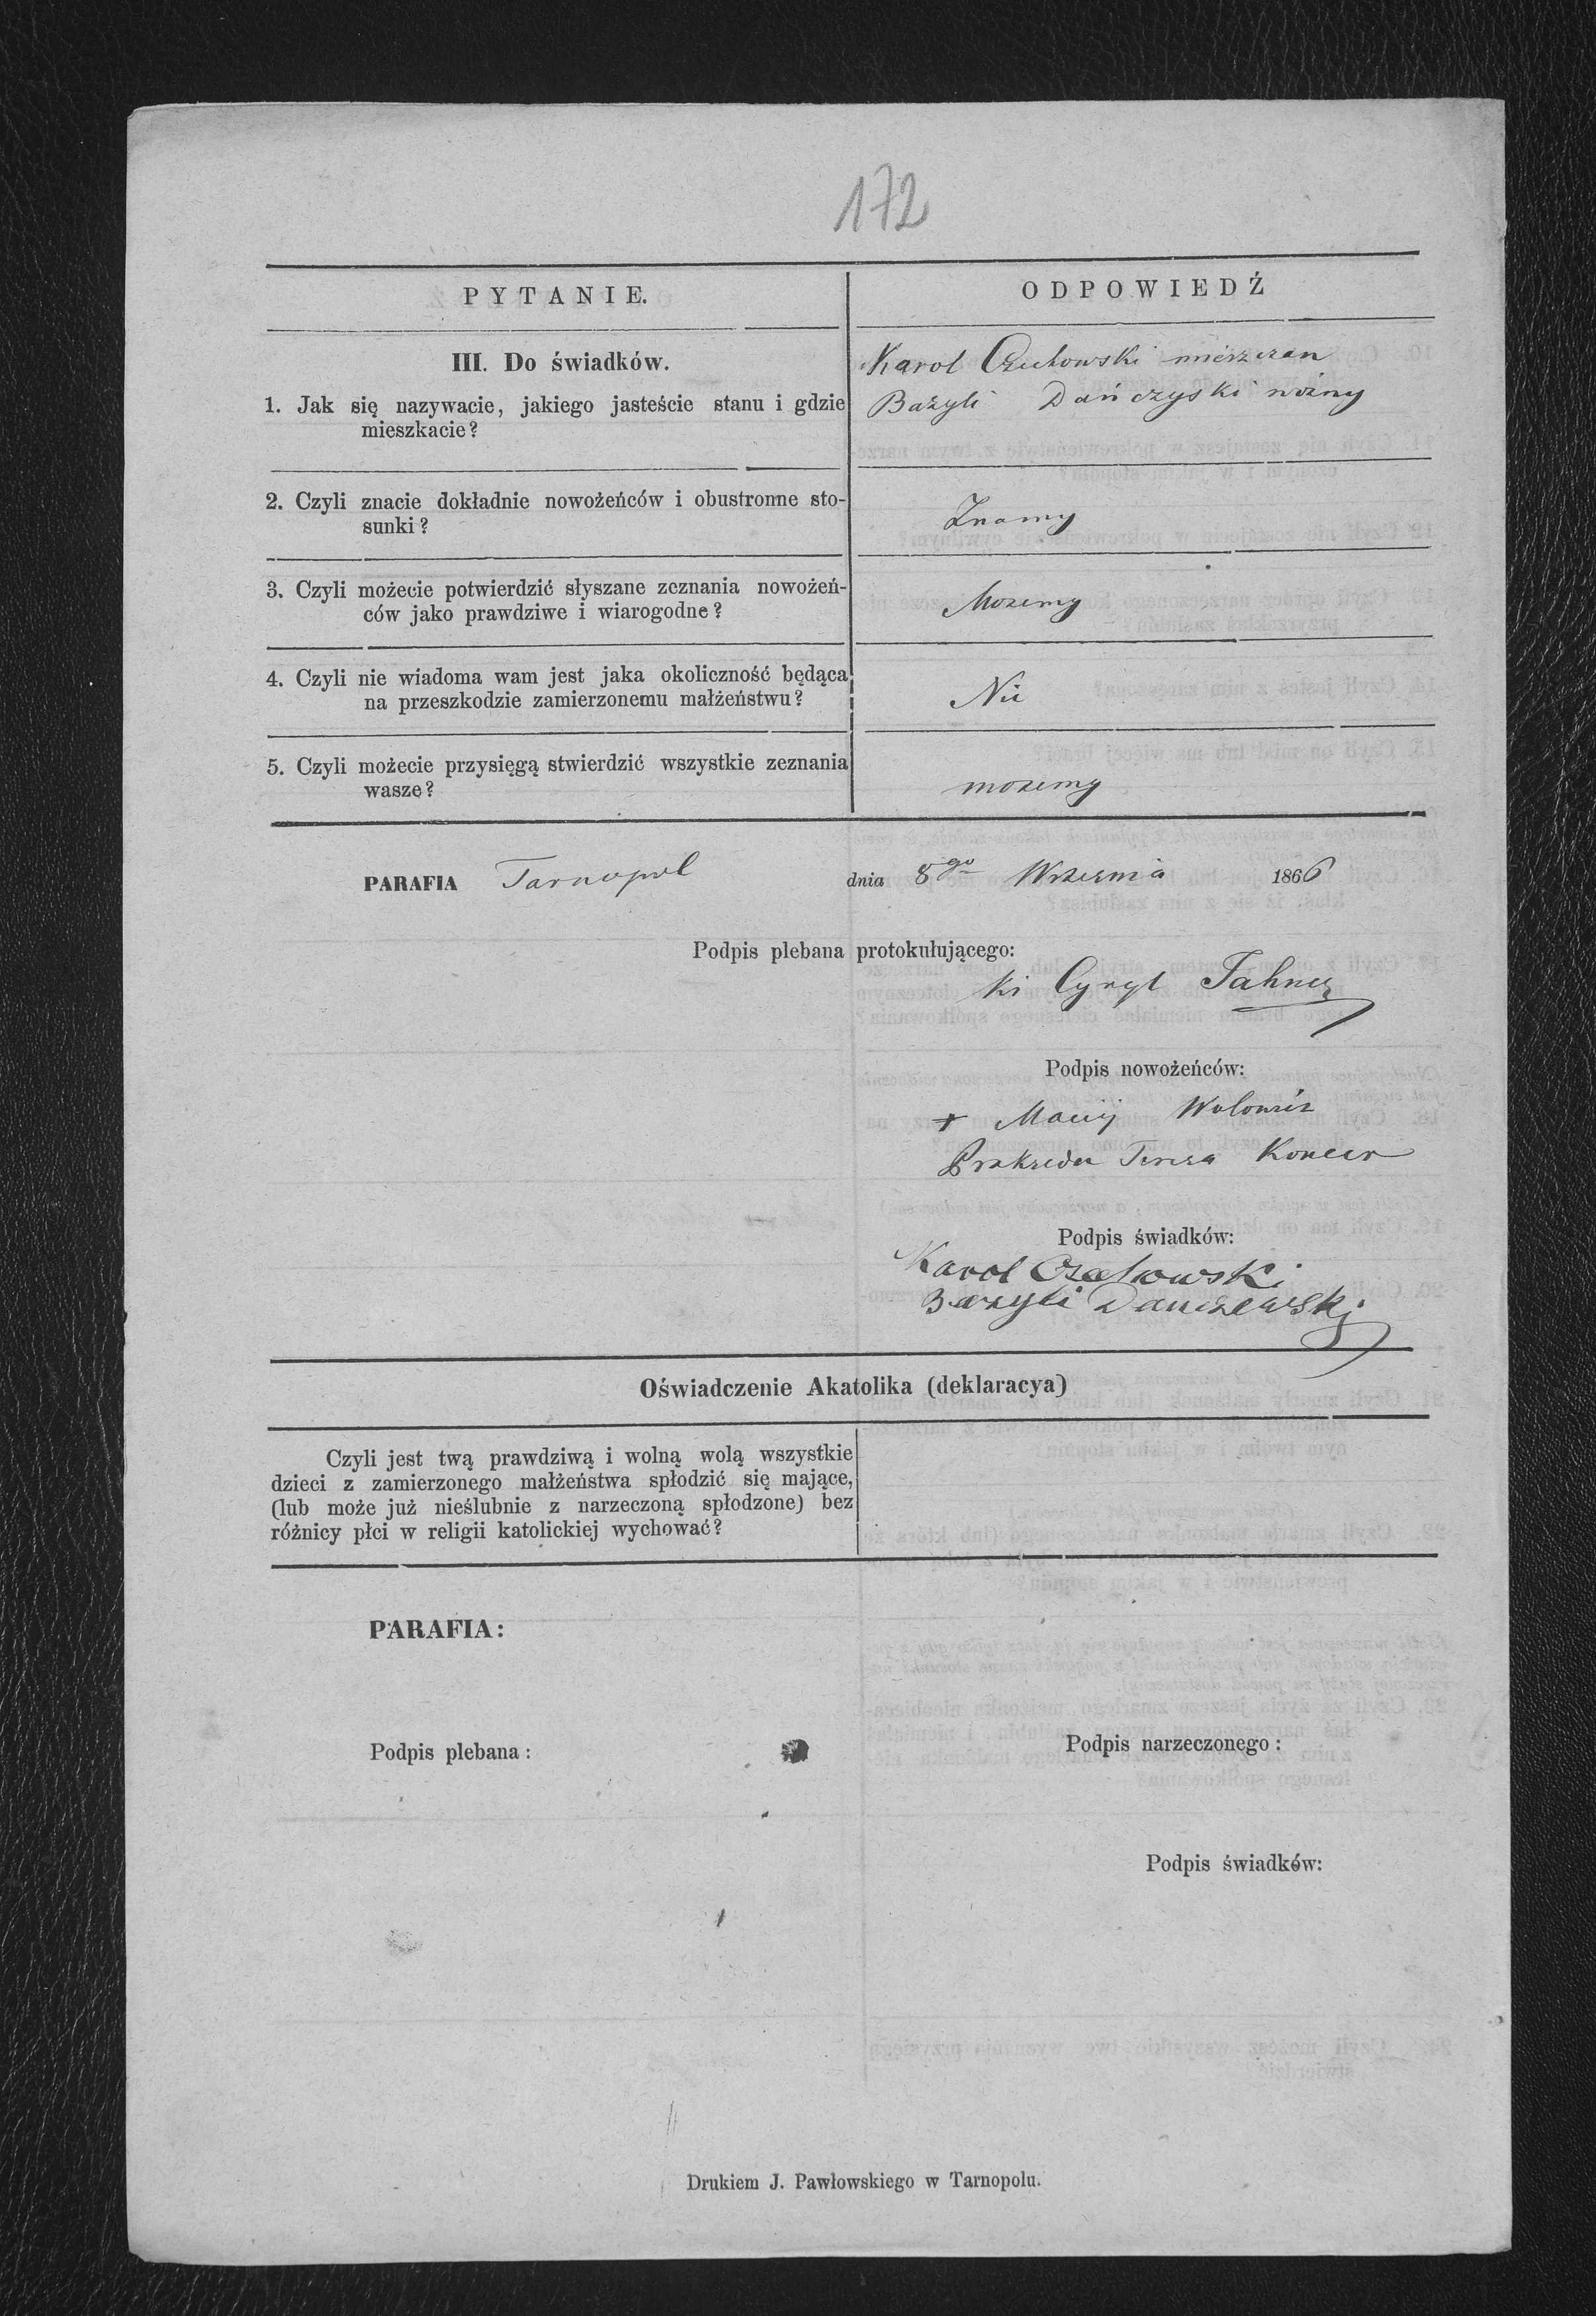 172
PYTANIE.
ODPOWIEDŹ
III. Do świadków.
1. Jak się nazywacie, jakiego jasteście stanu i gdzie
mieszkacie?
Karol Czechowski mieszczan
Bazyli Dańczyski woźny
2. Czyli znacie dokładnie nowożeńców i obustronne sto-
sunki?
Znamy
3. Czyli możecie potwierdzić słyszane zeznania nowożeń-
ców jako prawdziwe i wiarogodne?
Mozemy
4. Czyli nie wiadoma wam jest jaka okoliczność będąca
na przeszkodzie zamierzonemu małżeństwu?
Nie
5. Czyli możecie przysięgą stwierdzić wszystkie zeznania
wasze?
mozemy
PARAFIA Tarnopol dnia 8go Września 1866
Podpis plebana protokułującego:
Cyryl
Podpis nowożeńców:
+ Maciej
Teresa
Podpis świadków:
Karol Czechowski
Bazyli Danczewski
Oświadczenie Akatolika (deklaracya)
Czyli jest twą prawdziwą i wolną wolą wszystkie
dzieci z zamierzonego małżeństwa spłodzić się mające,
(lub może już nieślubnie z narzeczoną spłodzone) bez
różnicy płci w religii katolickiej wychować?
PARAFIA:
Podpis plebana:
Podpis narzeczonego:
Podpis świadków:
Drukiem J. Pawłowskiego w Tarnopolu.